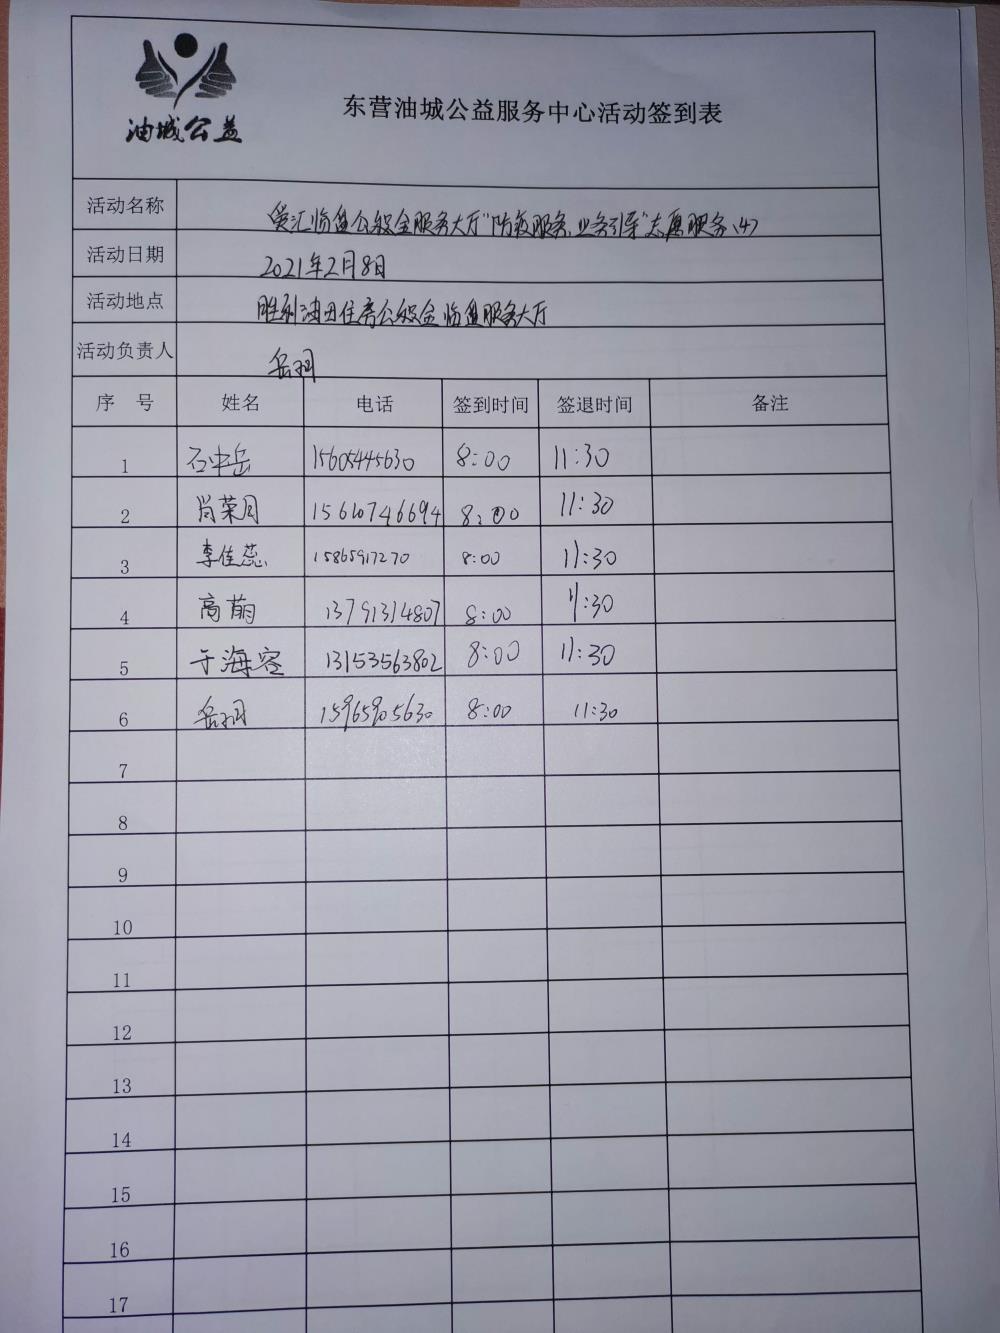 油城公益
东营油城公益服务中心活动签到表
活动名称 爱汇临盘公积金服务大厅"防疫服务、业务引导"志愿服务(4)
活动日期 2021年2月8日
活动地点 胜利油田住房公积金临盘服务大厅
活动负责人 岳羽
序 号 姓名 电话 签到时间 签退时间 备注
1 石中岳 15605445630 8:00 11:30
2 尚荣月 15610746694 8:00 11:30
3 李佳蕊 15865917270 8:00 11:30
4 高萠 13791314807 8:00 11:30
5 于海容 13153563802 8:00 11:30
6 岳羽 15965905630 8:00 11:30
7
8
9
10
11
12
13
14
15
16
17